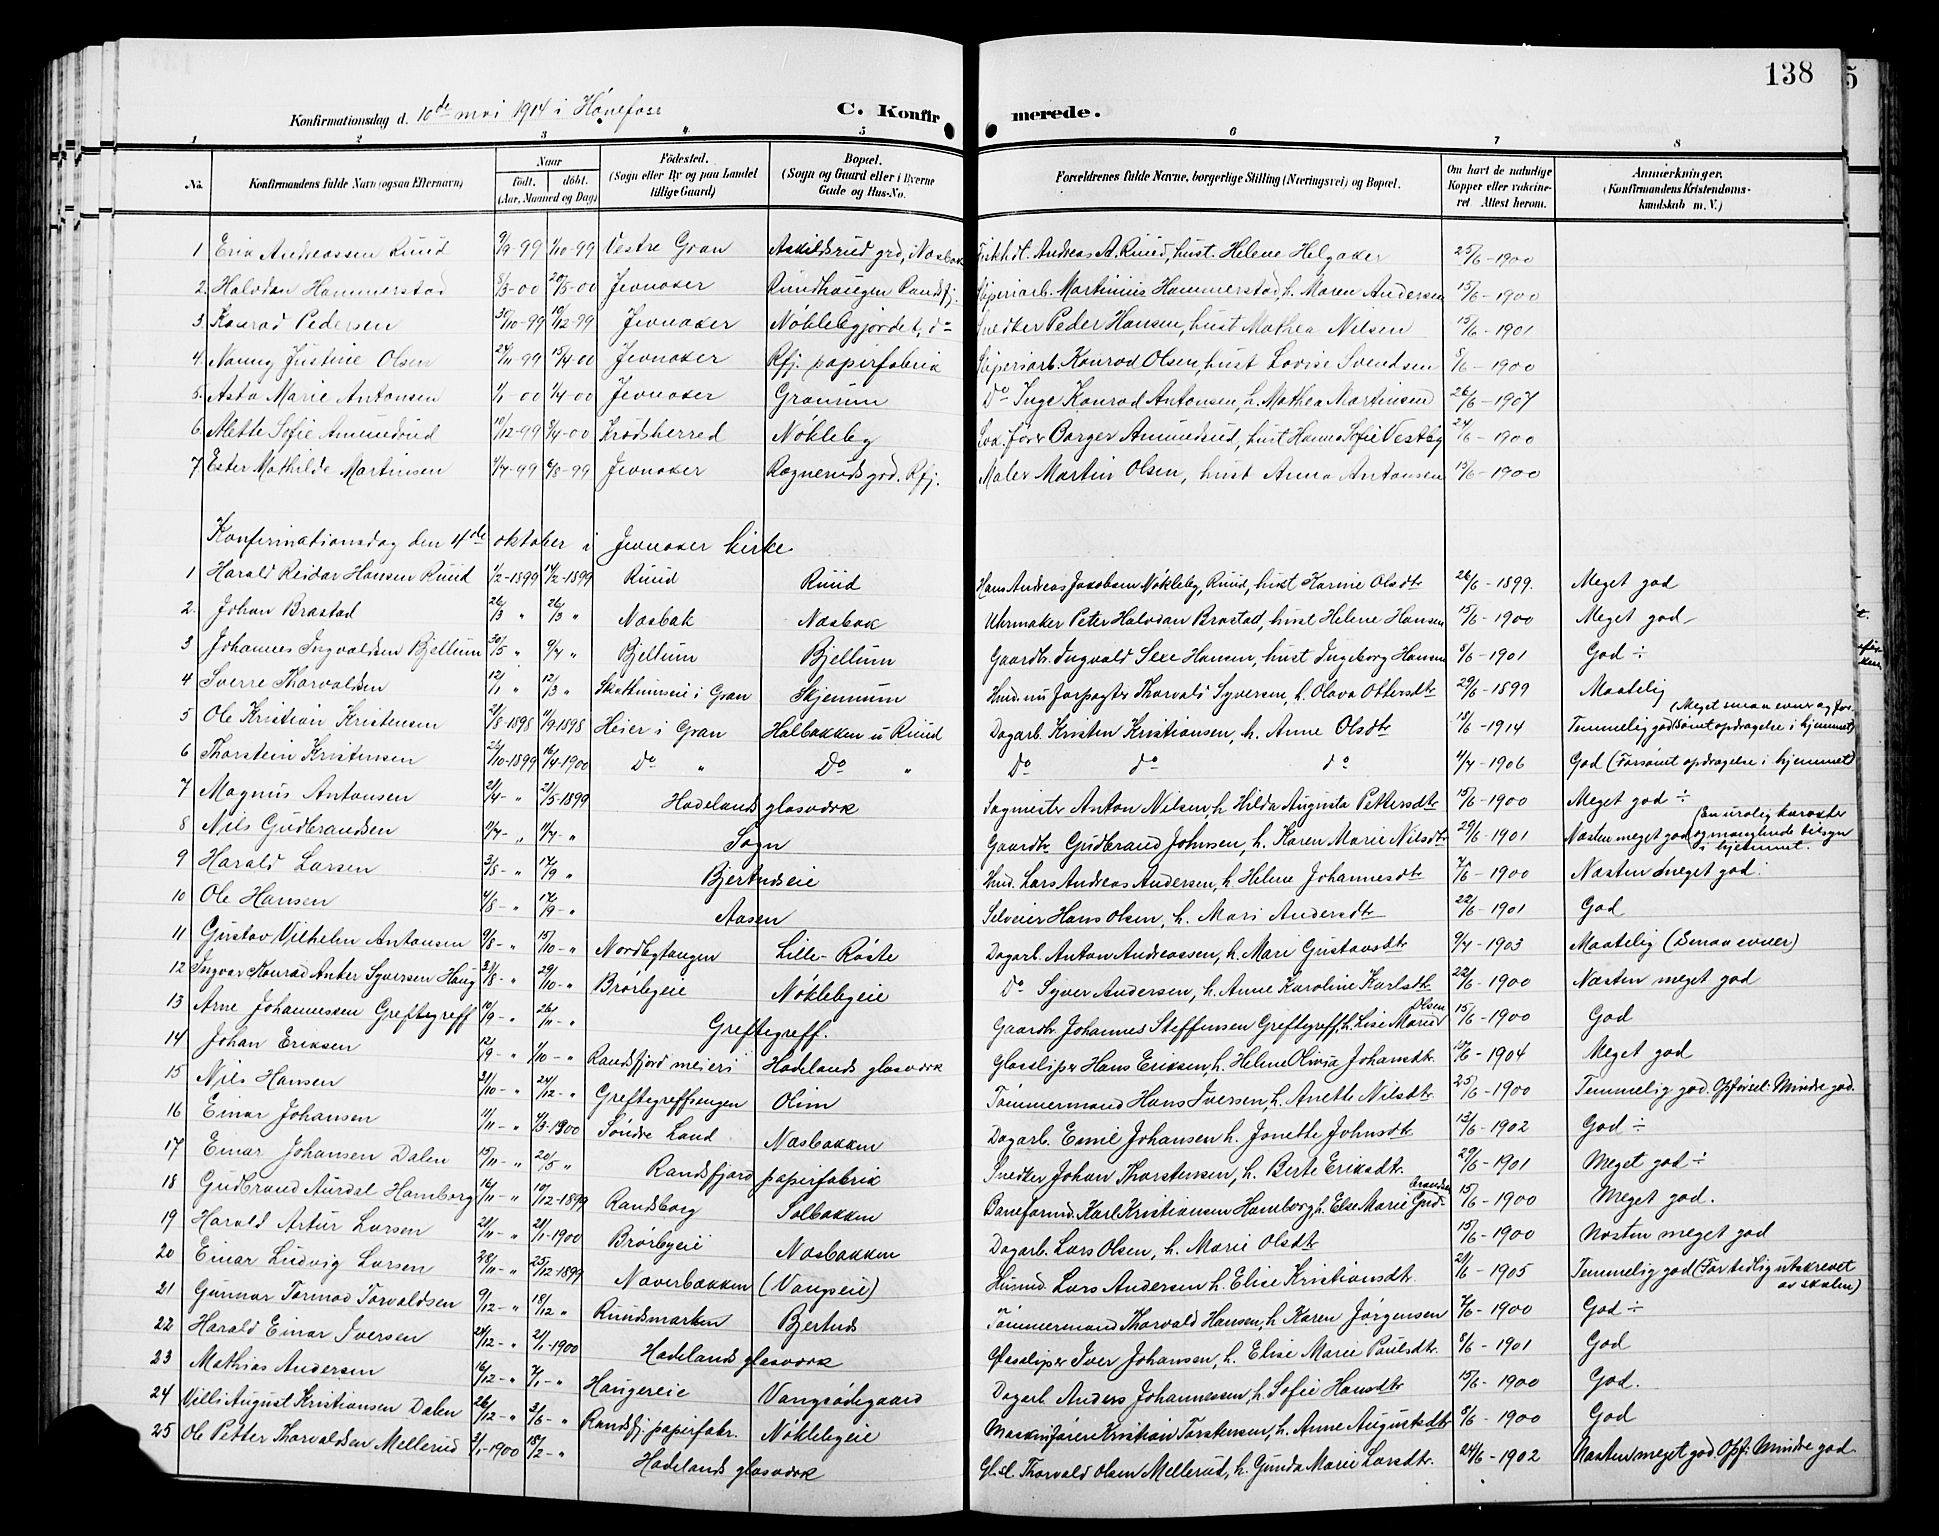 138
Konfirmationsdag d. 10de mai 1914 i Hønefoss C. Konfirmerede.
1 2 3 4 5 6 7 8
No. Konfirmandens fulde Navn (ogsaa Efternavn) Naar født. døbt. (Aar, Maaned og Dag) Fødested. (Sogn eller By og paa Landet tillige Gaard) Bopæl. (Sogn og Gaard eller i Byerne Gade og Hus-No. Forældrenes fulde Navne, borgerlige Stilling (Næringsvei) og Bopæl. Om havt de naturlige Kopper eller vaccineret Attest herom. Anmærkninger. (Konfirmandens Kristendomskundskab m. V.)
1 Erik Andreassen Ruud 9/9-99 1/10-99 Vestre Gran Askildsrud grd, Næsbak Andreas A. Ruud, hust. Helene Helgaker 25/6-1900
2. Halvdan Hammerstad 8/3-00 20/5-00 Jevnaker Ruudhaugen Randsfj. Papirarb. Martinius Hammerstad, h. Maren Andersen 15/6-1900
3 Konrad Pedersen 30/10-99 10/12-99 Jevnaker Nøklebygjordet, do Snedker Peder Hansen, hust Mathea Nilsen 15/6-1901
4. Nanny Justine Olsen 24/11-99 15/4-00 Jevnaker Rfj. papirfabrik Papirarb. Konrad Olsen, hust Lovise Svendsen 8/6-1900
5. Asta Marie Antonsen 1/1-00 1/4-00 Jevnaker Granum Do Inge Konrad Antonsen, h. Mathea Martinsen 26/6-1907
6. Alette Sofie Amundrud 10/12-99 8/4-00 Krødsherred Nøkleby Borger Amundrud, hust Hanna Sofie Vestby 24/6-1900
7 Ester Mathilde Martinsen 4/7-99 6/8-99 Jevnaker Rognerudsgrd. Rfj. Maler Martin Olsen, hust Anna Antonsen 15/6-1900
Konfirmationsdag den 4de oktober i Jevnaker kirke
1 Harald Reidar Hansen Ruud 1/2-1899 14/2-1899 Ruud Ruud Hans Andreas Jakobsen Nøkleby, Ruud, hust Karine Olsdtr 26/6-1899. Meget god
2. Johan Brastad 26/3 " 26/3 " Næsbak Næsbak Uhrmaker Peter Halvdan Brastad, hust Helene Hansen 15/6-1900 Meget god
3 Johannes Ingvaldsen Bjellum 30/5 " 9/7 " Bjellum Bjellum Gaardbr. Ingvald Sexe Hansen, hust Ingeborg Hansen 8/6-1901 God ÷
4 Sverre Thorvaldsen 12/1 " 12/3 " Skattumseie i Gran Skjennum Husm. nu forpagter Thorvald Syversen, h. Olava Ottersdtr 29/6-1899 Maatelig
5 Ole Kristian Kristensen 21/8-1898 4/9-1898 Heier i Gran Halbakken u Ruud Dagarb. Kristen Kristiansen, h. Anne Olsdtr 18/6-1914 Temmelig god (Meget smaa evner og forsømt opdragelse i hjemmet)
6 Thorstein Kristensen 24/10-1899 16/4-1900 Do " Do " Do do do 4/7-1906 God (Forsømt opdragelse i hjemmet)
7 Magnus Antonsen 21/4- " 21/5-1899 Hadelands glasværk Sagmester Anton Nilsen, h Hilda Augusta Pettersdtr 15/6-1900 Meget god ÷
8 Nils Gudbrandsen 2/7- " 11/7- " Sogn Gaardbr Gudbrand Johnsen, h. Karen Marie Nilsdtr 29/6-1901 Næsten meget god (En urolig karakter og manglende tilsyn i hjemmet.
9 Harald Larsen 3/8- " 17/9 " Bjertnæseie Husm. Lars Andreas Andersen, h Helene Johannesdtr 7/6-1900 Næsten meget god.
10 Ole Hansen 4/8- " 17/9- " Aasen Selveier Hans Olsen, h. Mari Andersdtr 22/6-1901 God
11 Gustav Vilhelm Antonsen 9/8- " 15/10- " Nordbytangen Lille-Røste Dagarb. Anton Andreassen, h. Mari Gustavsdtr. 9/7-1903 Maatelig (Smaa evner)
12 Ingvar Konrad Anter Syversen Haug 31/8- " 29/10- " Brørbyeie Nøklebyeie Do Syver Andersen, h. Anne Karoline Karlsdtr 22/6-1900 Næsten meget god
13 Arne Johannessen Greftegreff 10/9- " 26/11- " Greftegreff. Gaardbr. Johannes Steffensen Greftegreff, h. Lise Marie Olsen 15/6-1900 God
14 Johan Eriksen 12/9 " 1/10- " Randsfjord meieri Hadelands glasværk Glassliper Hans Eriksen, h. Helene Olivia Johansdtr. 10/6-1904 Meget god
15 Nils Hansen 31/10- " 24/12- " Greftegreffsengen Olim Tømmermand Hans Iversen, h. Anette Nilsdtr. 25/6-1900 Temmelig god. Opførsel: Mindre god.
16 Einar Johansen 11/11- " 4/3-1900 Søndre Land Næsbakken Dagarb. Emil Johansen h. Jonette Johnsdtr. 13/6-1902 God ÷
17 Einar Johansen Dalen 15/11- " 20/5 " Randsfjord papirfabrik Snedker Johan Thorstensen, h. Berte Eriksdtr. 29/6-1901 Meget god ÷
18 Gudbrand Aurdal Hamborg 16/11- " 10/12-1899 Randsborg Solbakken Baneformd. Karl Kristiansen Hamborg, h. Else Marie Gudbrandsen 15/6-1900 Meget god.
19 Harald Artur Larsen 21/11- " 21/1-1900 Brørbyeie Næsbakken Dagarb. Lars Olsen, h. Marie Olsdtr 15/6-1900 Næsten meget god
20 Einar Ludvig Larsen 28/11- " 25/12-1899 Naverbakken (Vangseie) Husmd. Lars Andersen h. Elise Kristiansdtr. 21/6-1905 Temmelig god (For tidlig utskrevet av skolen)
21 Gunnar Tormod Torvaldsen 9/12- " 18/12 " Ruudsmarken Bjertnæs Tømmermand Thorvald Hansen, h Karen Jørgensen 7/6-1900 God ÷
22 Harald Einar Iversen 21/12- " 21/1-1900 Hadelands glasværk Glassliper Iver Johansen, h. Elise Marie Paulsdtr. 8/6-1901 God
23 Mathias Andersen 16/12- " 7/1- " Haugereie Vangsødegaard Dagarb. Anders Johannessen, h. Sofie Hansdtr 15/6-1900 God.
24 Villi August Kristiansen Dalen 26/12- " 3/6- " Randsfj. papirfabr. Nøklebyeie Maskinfører Kristian Torstensen, h. Anne Augustsdtr 8/6-1900 God
25 Ole Petter Thorvaldsen Mellerud 3/1-1900 18/2- " Hadelands glasværk Gl.sl. Thorvald Olsen Mellerud, h. Gunda Marie Larsdtr. 24/6-1902 Næsten meget god. Opf: Mindre god